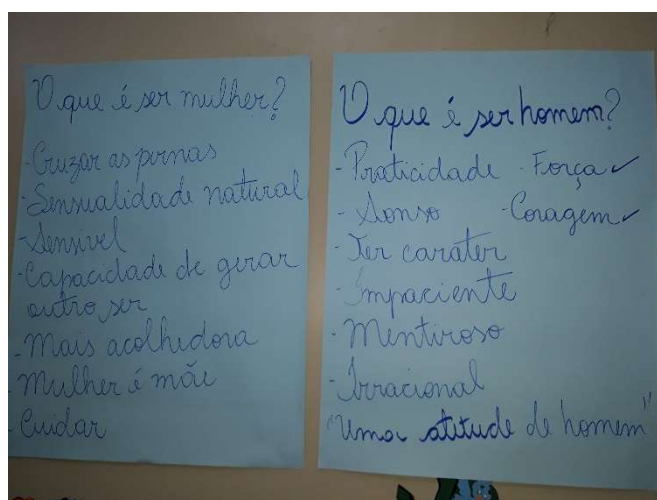 O que é ser mulher?
- Cruzar as pernas
- Sensualidade natural
- Sensivel
- Capacidade de gerar
outro ser
- Mais acolhedora
- Mulher é mãe
- Cuidar
O que é ser homem?
- Praticidade - Força ✓
- Sonso - Coragem ✓
- Ter carater
- Impaciente
- Mentiroso
- Irracional
"Uma atitude de homem"